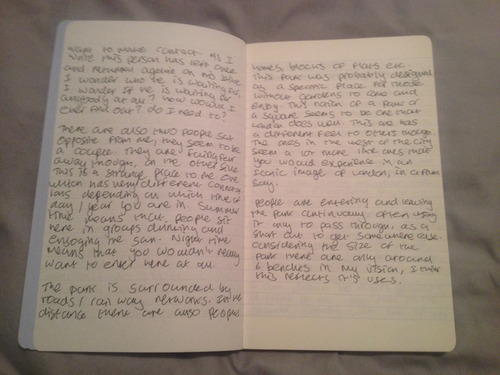 ways to make contact. As I
write this person has left once
and returned again on his
I wonder who he is waiting for,
I wonder if he is waiting for
anybody at all? how would I
ever find out? do I need to?
There are also two people sat
opposite from me, they seem to be
a couple. They are fairly far
away though, on the other side.
This is a strange place to me. One
which has very different
depending on which time of
day / year you are in. Summer
time means that people sit
here in groups drinking and
enjoying the sun. Night time
means that you wouldn't really
want to enter here at all.
The park is surrounded by
roads / railway networks. In the
distance there are also people
homes, blocks of flats etc.
This park was probably designed
as a specific place for those
without gardens to come and
enjoy. This notion of a park or
a square seems to be one that
London does well. This one has
a different feel to others though.
The ones in the west of the city
seem a lot more like ones that
you would experience in an
iconic image of London, in a film
say.
People are entering and leaving
the park continually often using
it only to pass through, as a
short cut to get somewhere else.
Considering the size of the
park there are only around
6 benches in my vision, I think
this reflects it's uses.